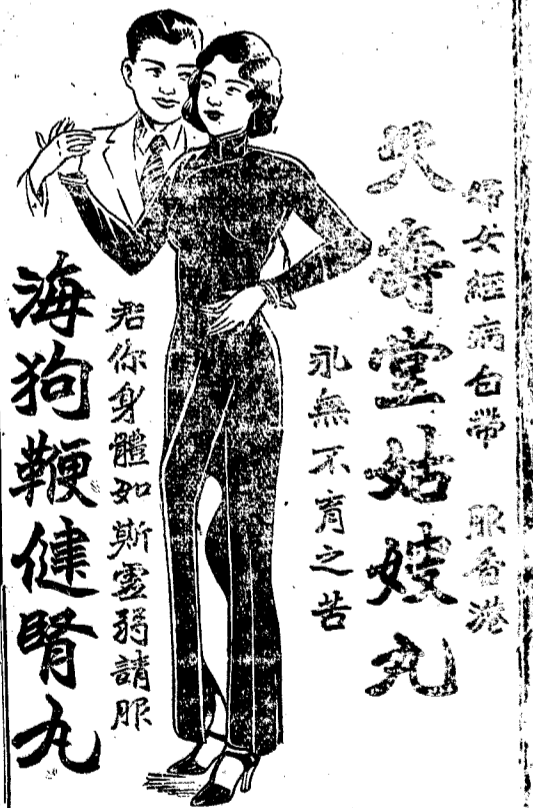 婦女經病白帶　服香港
天壽堂姑嫂丸
永無不育之苦
君你身體如斯虛弱請服
海狗鞭健腎丸